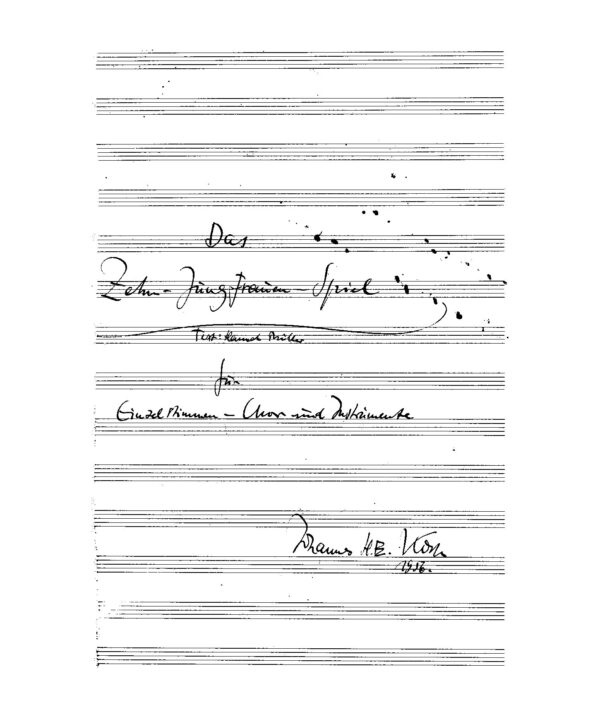 Das
Zehn-Jungfrauen-Spiel
Text: Müller
für
Einzelstimmen - Chor und Instrumente
Johannes H.E. Koch
1956.